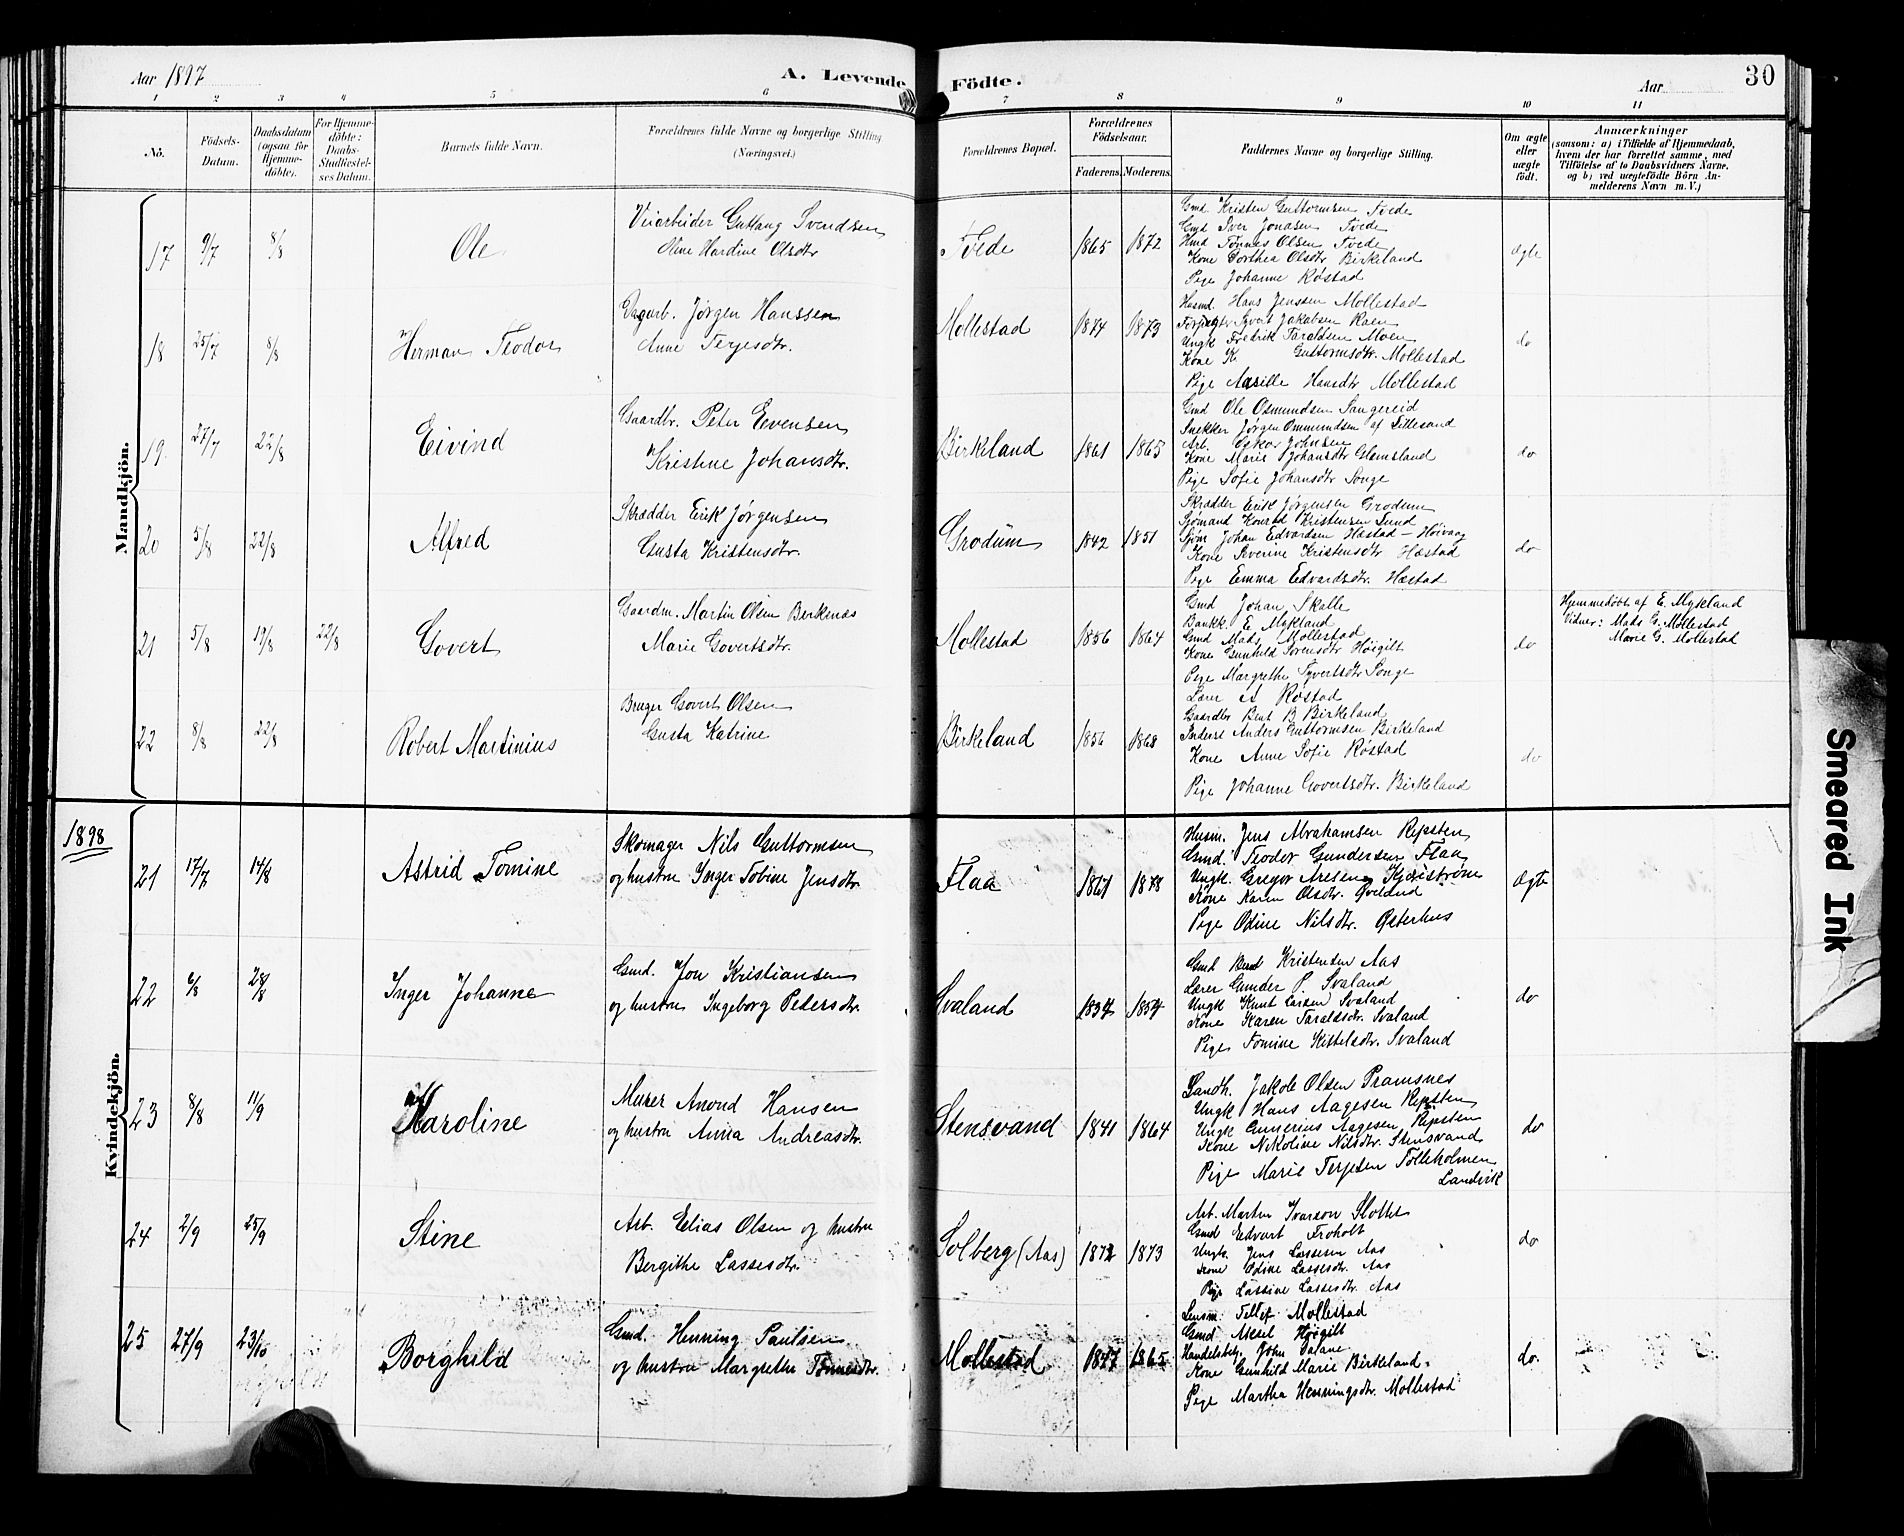 Aar 1897
A. Levende Födte.
Aar 30
1 2 3 4 5 6 7 8 9 10 11
No.
Födsels-Datum.
Daabsdatum (ogsaa for Hjemmedöbte).
For Hjemmedöbte: Daabs-Stadfæstelses Datum.
Barnets fulde Navn.
Forældrenes fulde Navne og borgerlige Stilling (Næringsvei.)
Forældrenes Bopæl.
Forældrenes Födselsaar.
Faderens. Moderens.
Faddernes Navne og borgerlige Stilling.
Om ægte eller uægte født.
Anmærkninger
(saasom: a) i Tilfælde af Hjemmedaab, hvem der har forrettet samme, med Tilföielse af to Daabsvidners Navne, og b) ved uægtefödte Börn Anmelderens Navn m. V.)
Mandkjön.
17 9/7 8/8 Ole
Veiarbeider Guttorm Svendsen
Oline Hardine Olsdtr
Tvede 1865 1872
Gmd. Kristen Guttormsen Tvede
Gmd Iver Jonasen Tvede
Hmd Tønnes Olsen Tvede
Kone Dorthea Olsdtr Birkeland
Pige Johanne Røstad
Ægte
18 25/7 8/8 Herman Teodor
Dagarb. Jørgen Hanssen
Anne Terjesdtr.
Mollestad 1874 1873
Husmd. Hans Jenssen Mollestad
Syvert Jakobsen Raen
Ungk Fredrik Taraldsen Moen
Kone K. Guttormsdtr. Mollestad
Pige Aasille Hansdtr Mollestad
do
19 27/7 22/8 Eivind
Gaardbr. Peter Evensen
Kristine Johansdtr.
Birkeland 1861 1865
Gmd Ole Osmundsen Sangereid
Snekker Jørgen Ommundsen af Lillesand
Arb. Oskar Johnsen
Kone Marie Johansdtr Glamsland
Pige Sofie Johansdtr Songe
do
20 5/8 22/8 Alfred
Skrædder Erik Jørgensen
Gusta Kristensdtr.
Grodum 1842 1851
Skrædder Erik Jørgensen Grodum
Sjømand Konrad Kristensen Lund
Sjøm Johan Edvardsen Hæstad - Høivaag
Kone Severine Kristensdtr Hæstad
Pige Emma Edvardsdtr. Hæstad
do
21 5/8 19/8 22/8 Govert
Gaardm. Martin Olsen Berkenæs
Marie Govertsdtr.
Mollestad 1856 1864
Gmd Johan Skalle
Bankk. E. Mykland
Gmd Mads Mollestad
Kone Gunhild Sørensdtr Høigilt
Pige Margrethe Syvertsdtr Songe
do
Hjemmedøbt af E. Mykland
Vidner: Mads G. Mollestad
Marie G. Mollestad
22 8/8 22/8 Robert Martinius
Bruger Govert Olsen
Gusta Katrine
Birkeland 1856 1868
Lærer A Røstad
Gaardbr Bent B Birkeland
Anders Guttormsen Birkeland
Kone Anne Sofie Røstad
Pige Johanne Govertsdtr. Birkeland
do
1898
Kvindekjön.
21 17/7 14/8 Astrid Tomine
Skomager Nils Guttormsen
og hustru Inger Tobine Jensdtr.
Flaa 1867 1878
Husm. Jens Abrahamsen Repsten
Gmd. Teodor Gundersen Flaa
Ungk. Gregor Aresen Kjeristrøm
Kone Karen Olsdtr. Øveland
Pige Odine Nilsdtr. Østerhus
Ægte
22 6/8 28/8 Inger Johanne
Gmd. Jon Kristiansen
og hustru Ingeborg Pedersdtr.
Svaland 1837 1857
Gmd Bernt Kristensen Aas
Lærer Gunder P. Svaland
Ungk Knut Larsen Svaland
Kone Karen Taraldsdtr. Svaland
Pige Tomine Kittelsdtr. Svaland
do
23 8/8 11/9 Karoline
Murer Anond Hansen
og hustru Anna Andreasdtr.
Stensvand 1841 1864
Landh. Jakob Olsen Pramsnes
Ungk Hans Aagesen Repsten
Ungk Gunerius Aagesen Repsten
Kone Nikoline Nilsdtr. Stensvand
Pige Marie Terjesen Tolleholmen
Landvik
do
24 2/9 25/9 Stine
Arb. Elias Olsen og hustru
Bergithe Lassesdtr.
Solberg (Aas) 1872 1873
Arb. Marten Ivarson Slottet
Gmd Edvart Froholt
Ungk. Jens Lassesen Aas
Kone Odine Lassesdtr. Aas
Pige Lassine Lassesdtr. Aas
do
25 27/9 23/10 Borghild
Gmd. Henning Paulsen
og hustru Margrethe Tønnesdtr.
Mollestad 1847 1865
Lensm. Tellef Mollestad
Gmd Aksel Høigilt
Handelsbetj. John Dalane
Kone Gunhild Marie Birkeland.
Pige Martha Henningsdtr. Mollestad
do.
Smeared Ink